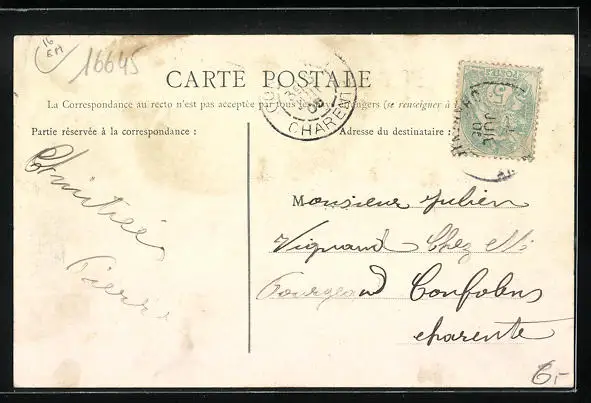 16
EM
16645
CARTE POSTALE
La Correspondance au recto n'est pas acceptée par tous les étrangers (se renseigner à
Partie réservée à la correspondance :
Adresse du destinataire :
CHARENTE
POSTES
5
JUIL
Amitiés
Pierre
Monsieur Julien
Vignaud Chez Mr
Fourgeaud Confolens
charente
6,-